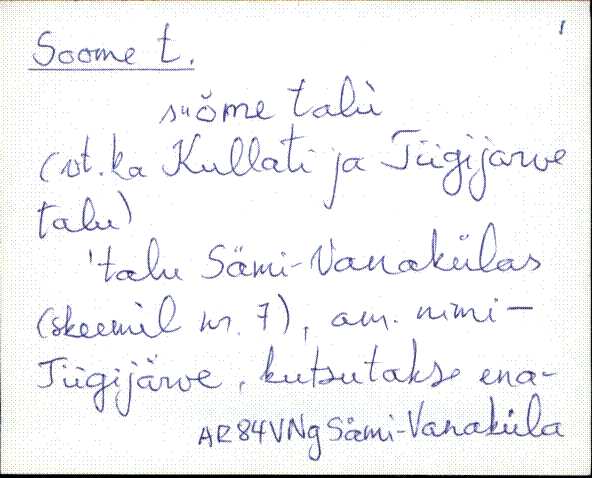 1
Soome t.
suõme talù
(vt. ka Kullati ja Tiigijärve
talu)
'talu Sämi-Vanakülas
(skeemil nr. 7), am. nimi –
Tiigijärve, kutsutakse ena-
AR84VNg Sämi-Vanaküla